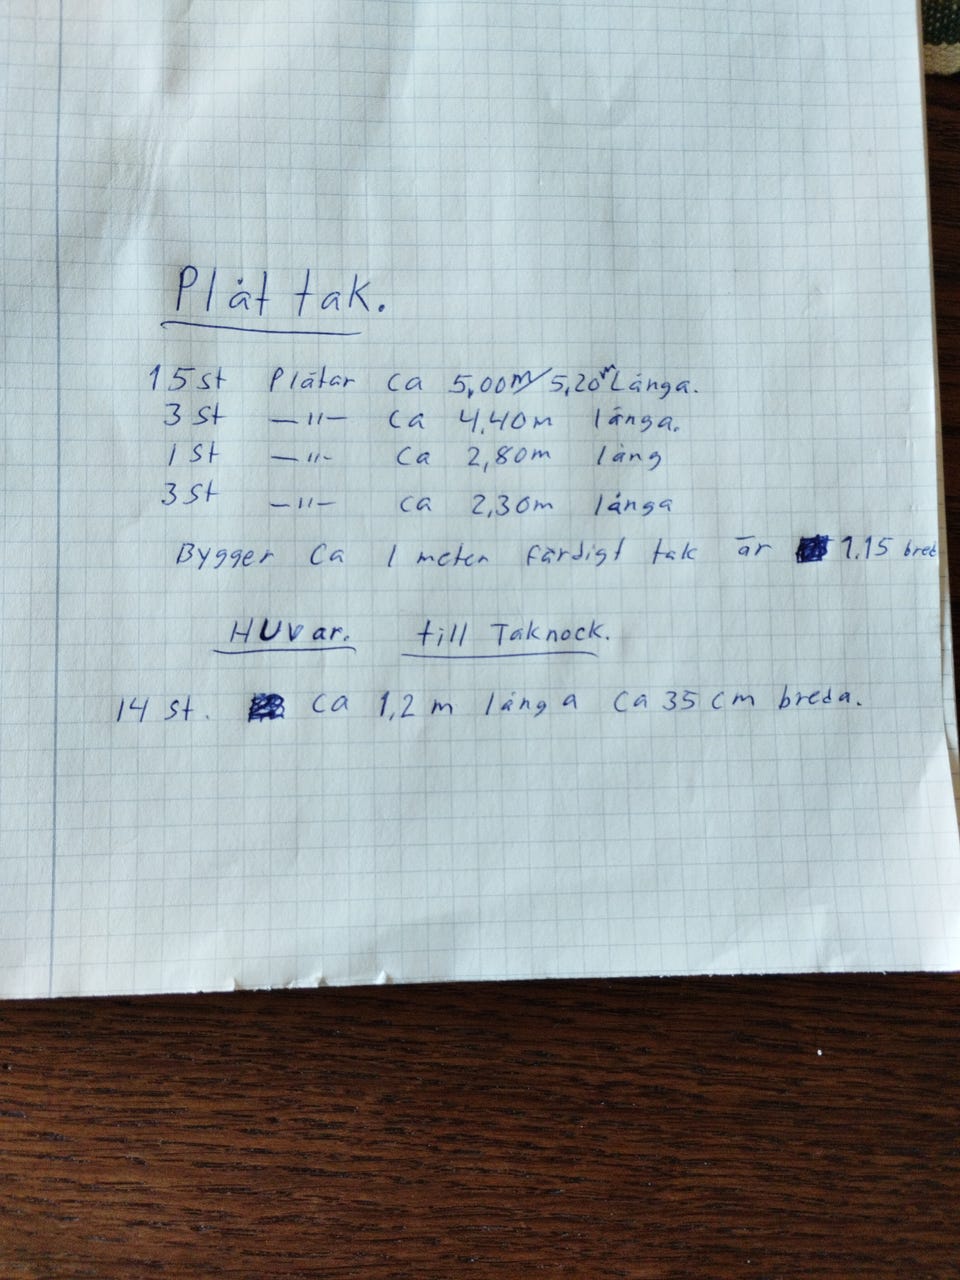 Plåt tak.
15 st Plåtar ca 5,00m/5,20m Långa.
3 st —"— ca 4,40m långa.
1 st —"— ca 2,80m lång
3 st —"— ca 2,30m långa
Bygger ca 1 meter färdigt tak är 1.15 bred
HUvar. till Taknock.
14 st. ca 1,2 m långa ca 35 cm breda.